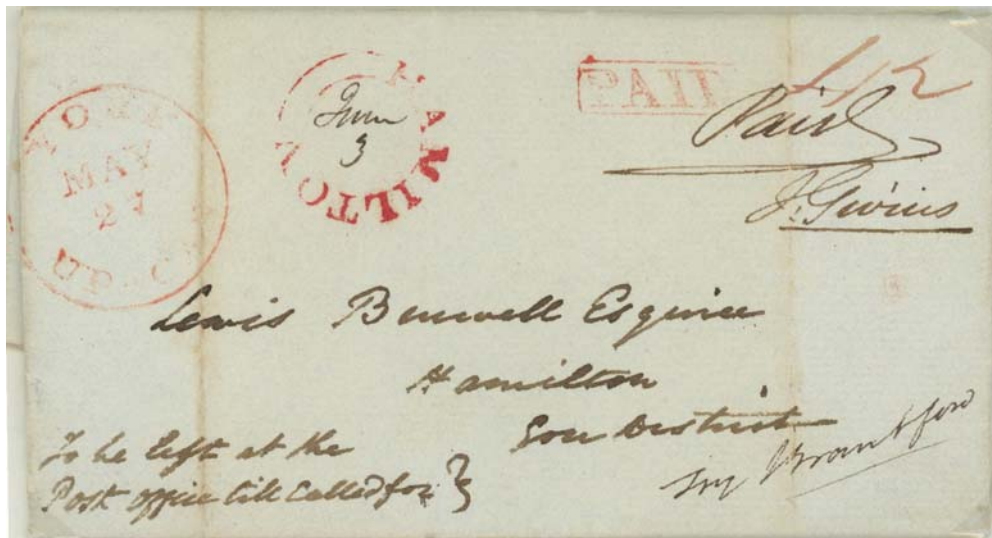 YORK
MAY
27
U.C.
HAMILTON
June
3
PAID
4/2
Paid
J. Givins
Lewis Burwell Esquire
Hamilton
Gore District
To be left at the
Post office till called for }
Try Brantford